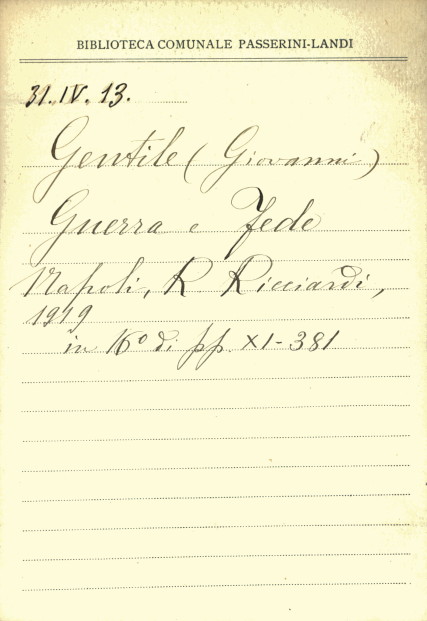 BIBLIOTECA COMUNALE PASSERINI-LANDI
31.IV.13.
Gentile (Giovanni)
Guerra e Fede
Napoli, R Ricciardi,
1919
in 16º di pp. XI-381